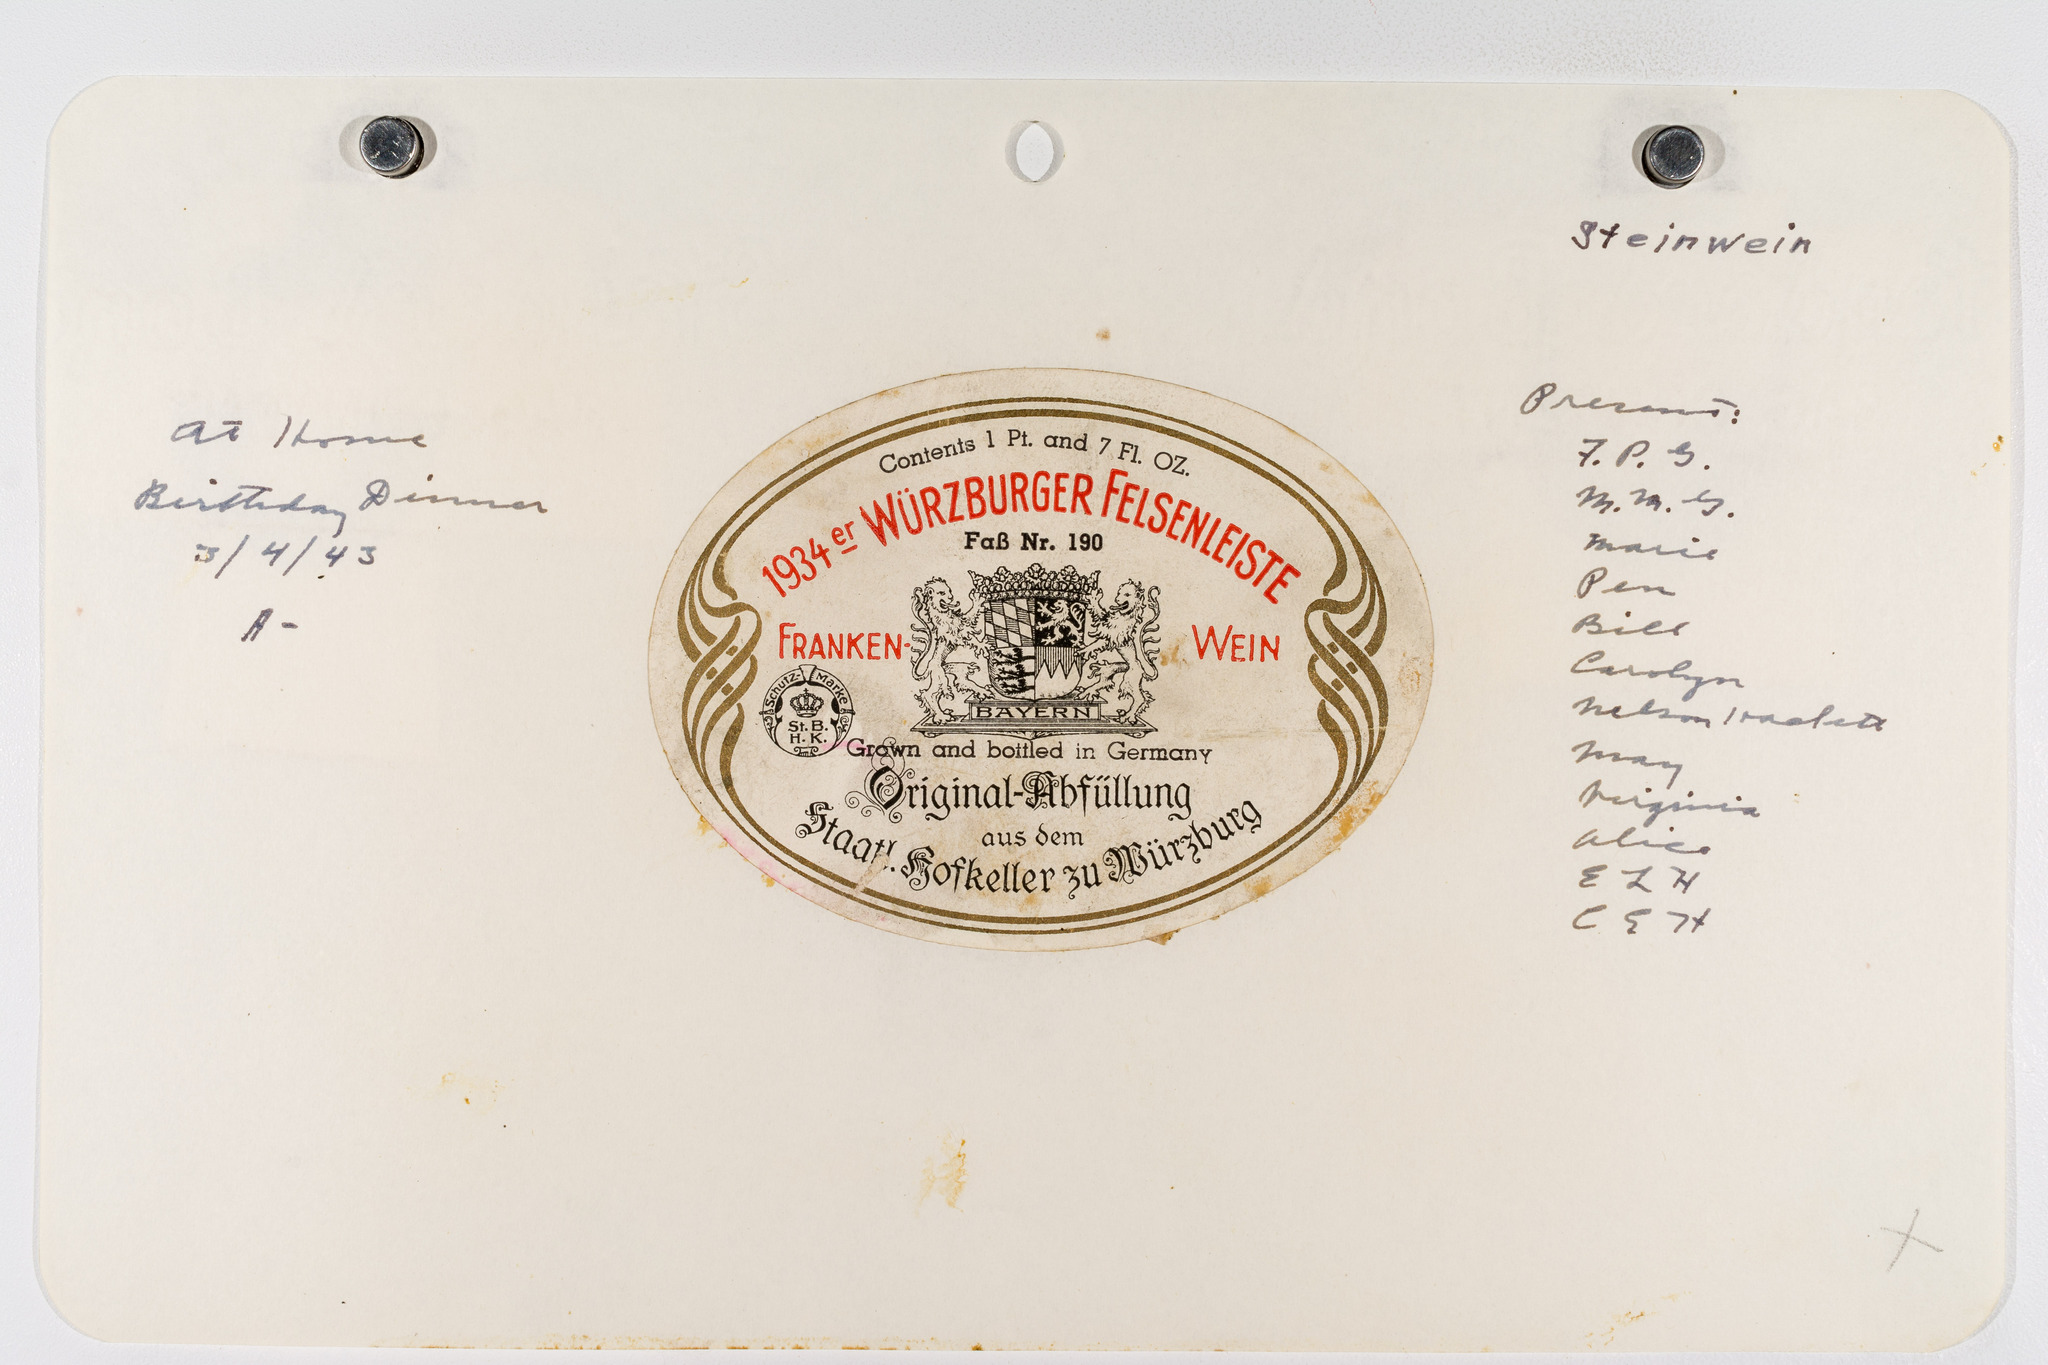 Steinwein
At Home
Birthday Dinner
3/4/43
A-
Contents 1 Pt. and 7 Fl. OZ.
1934er WÜRZBURGER FELSENLEISTE
Faß Nr. 190
FRANKEN-WEIN
BAYERN
Schutz-Marke
St. B.
H. K.
Grown and bottled in Germany
Original-Abfüllung
aus dem
Staatl. Hofkeller zu Würzburg
Present:
F. P. G.
M. M. G.
Marie
Pen
Bill
Carolyn
Nelson Hackett
May
Virginia
Alice
E L H
C E H
X